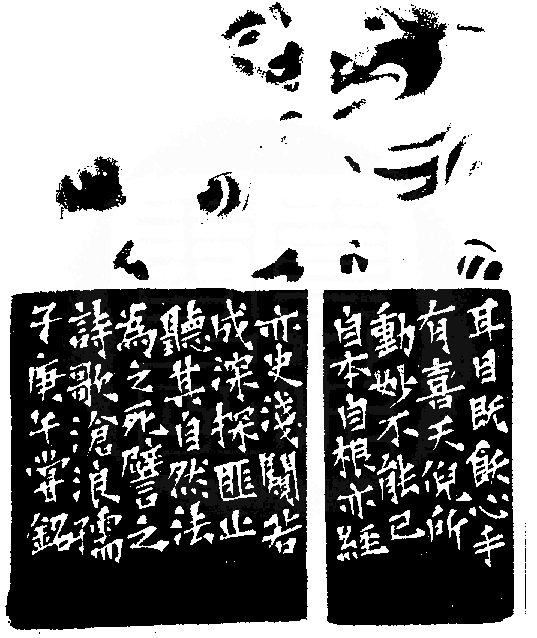 耳目既飫心手
有喜天倪所
動妙不能已
自本自根亦經
亦史淺闚若
成深探匪止
聽其自然法
為之死譬之
詩歌滄浪孺
子庚午銘